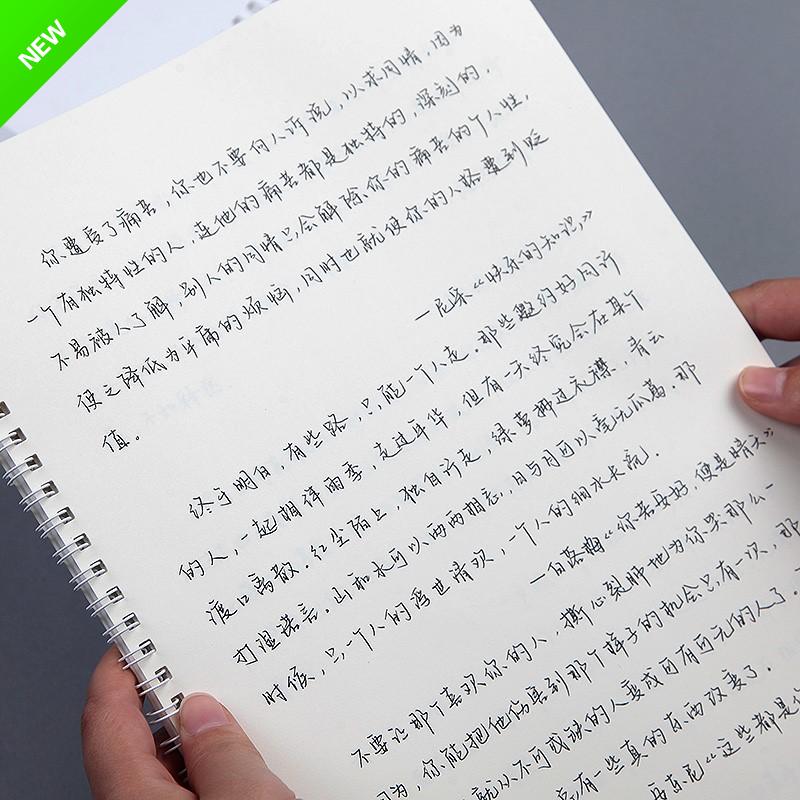 NEW
你遭受了痛苦，你也不要向人诉说，以求同情，因为
一个有独特性的人，连他的痛苦都是独特的，深刻的，
不易被人了解，别人的同情只会解除你的痛苦的个人性，
使之降低为平庸的烦恼，同时也就使你的人格遭到贬
值。
—尼采《快乐的知识》
终于明白，有些路，只能一个人走。那些邀约好同行
的人，一起相伴雨季，走过年华，但有一天终究会在某个
渡口离散。红尘陌上，独自行走，绿萝拂过衣襟，青云
打湿诺言。山和水可以两两相忘，日与月可以毫无瓜葛。那
时候，只一个人的浮世清欢，一个人的细水长流。
—白落梅《你若安好，便是晴天》
不要让那个喜欢你的人，撕心裂肺地为你哭那么一
因为，你能把他伤害到那个样子的机会只有一次，那
就从不可或缺的人变成可有可无的人了。
总有一些真的东西改变了。
《这些都是